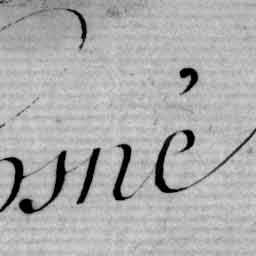 osné